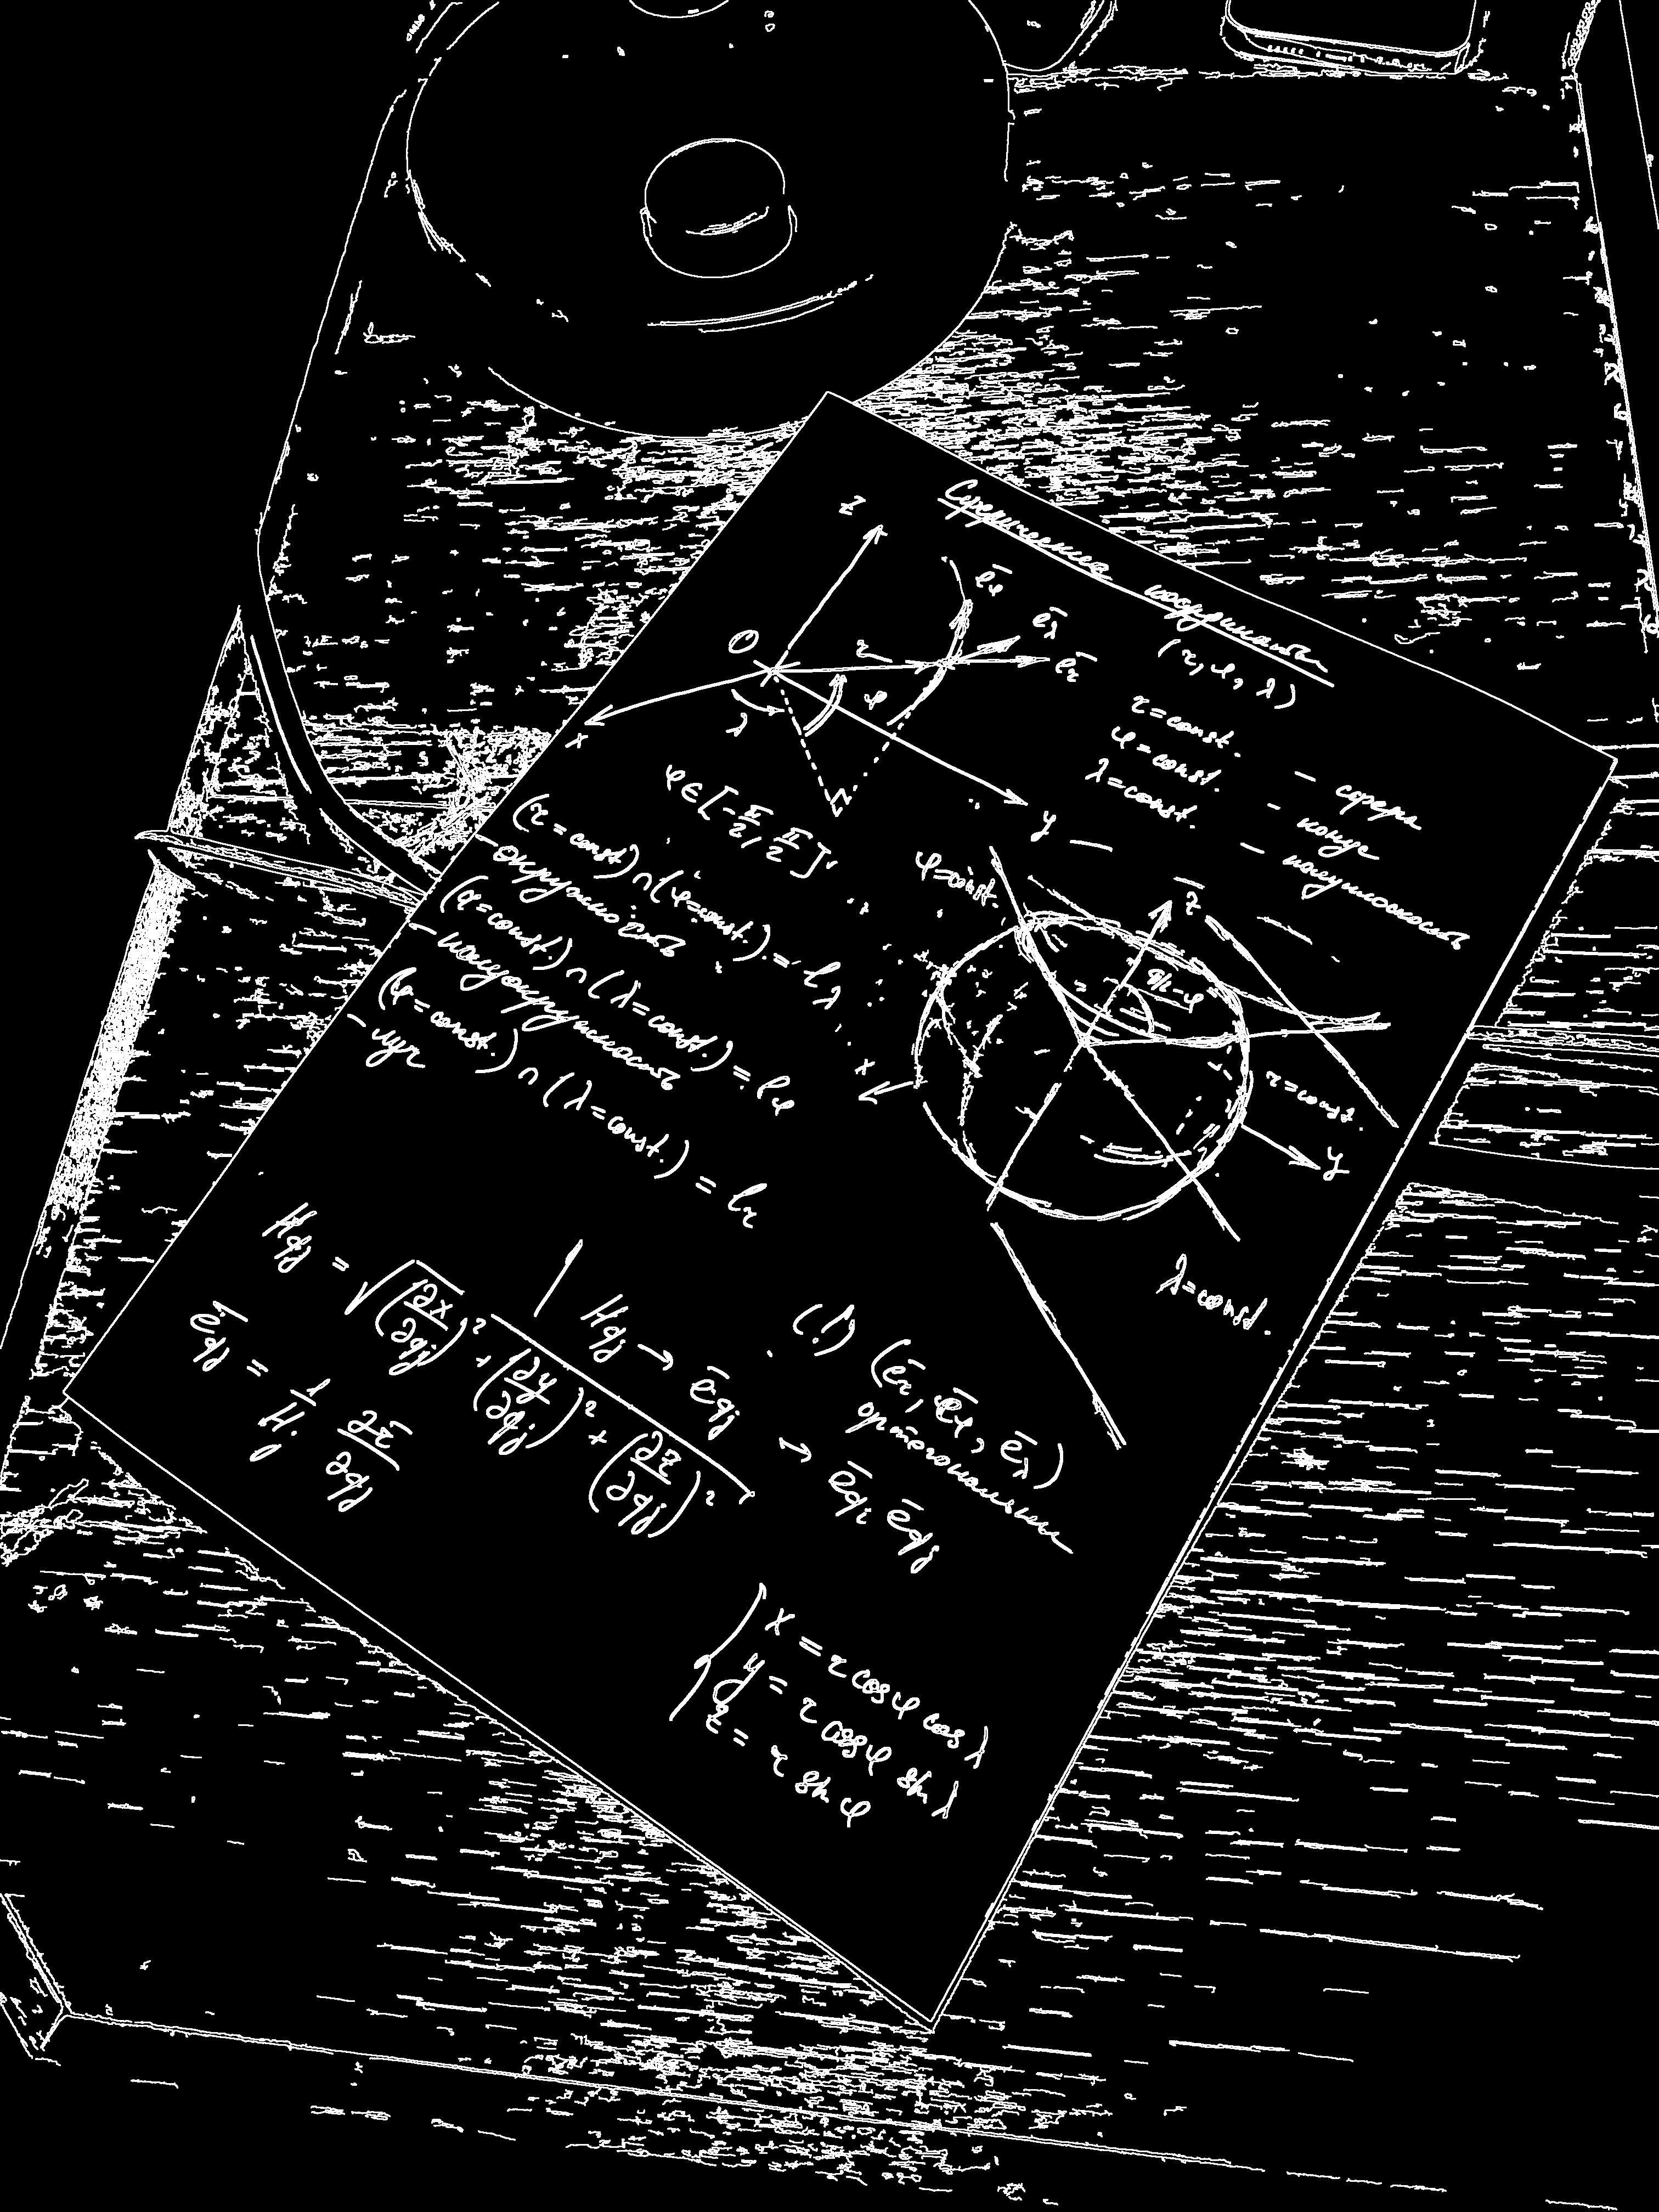 Сферические координаты
(r, φ, λ)
z
O
x
y
λ
φ
r
e̅φ
e̅λ
e̅r
r = const. — сфера
φ = const. — конус
λ = const. — полуплоскость
φ ∈ [-π/2, π/2]
(r = const) ∩ (φ = const.) = lλ
— окружность
(r = const) ∩ (λ = const.) = lφ
— полуокружность
(φ = const.) ∩ (λ = const.) = lr
— луч
φ = const.
z
π/2 - φ
x
r = const.
y
λ = const.
H_qj = √((∂x/∂qj)² + (∂y/∂qj)² + (∂z/∂qj)²)
e̅_qj = 1/H_j ∂r̅/∂qj
H_qj → e̅_qj → e̅_qi e̅_qj
(!) (e̅r, e̅φ, e̅λ)
ортогональны
x = r cos φ cos λ
y = r cos φ sin λ
z = r sin φ